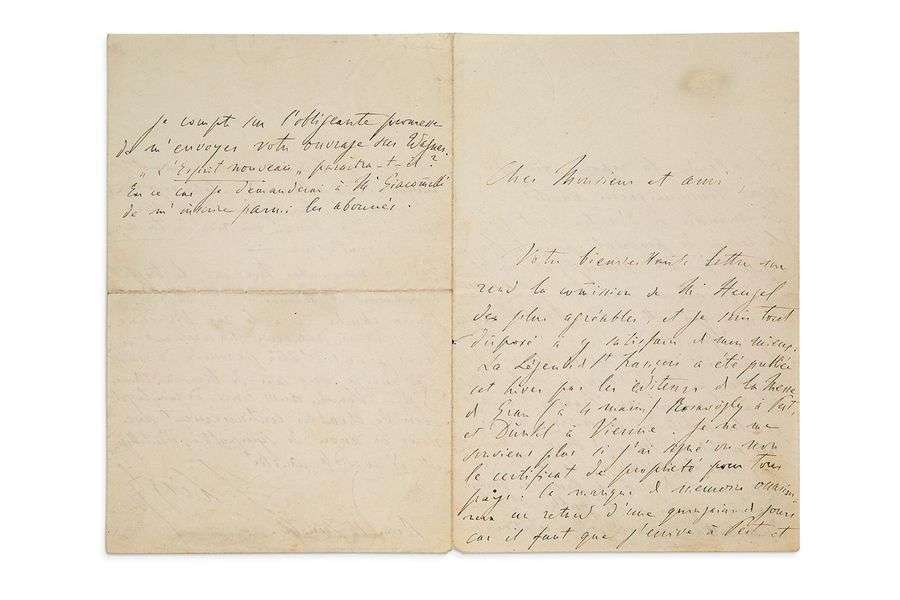 je compte sur l'obligeante promesse
de m'envoyer votre ouvrage sur Wagner.
"L'Esprit nouveau" paraitra-t-il?
En ce cas je demanderai à Mr Giacomelli
de m'inscrire parmi les abonnés.
Cher Monsieur et ami
Votre bienveillante lettre me
rend la comission de Mr Heugel
des plus agréables, et je suis tout
disposé à y satisfaire de mon mieux.
La Légende de St François a été publiée
cet hiver par les editeurs de la Messe
de Gran (à 4 mains) Roszavölgy à Pest,
et Dünkl à Vienne. Je ne me
souviens plus si j'ai signé ou non
le certificat de propriété pour tous
pays: le manque de memoire
un retard d'une quinzaine de jours
car il faut que j'écrive à Pest et